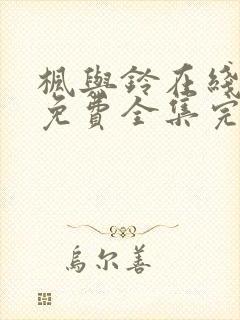 楓與鈴在綫
免費全集完
烏尔善